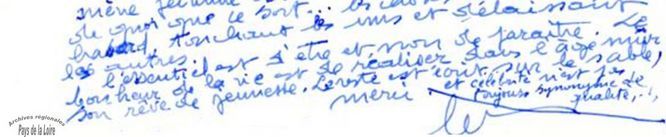 mène
de quoi que ce soit... les
hasard, touchant les uns et délaissant
les autres.
L'essentiel est d'être et non de paraître. Le
bonheur de la vie est de réaliser dans l'âge mûr
son rêve de jeunesse. Le reste est écrit sur le sable,
et célébrité n'est pas
toujours synonyme de
qualité...
merci
Archives régionales
Pays de la Loire